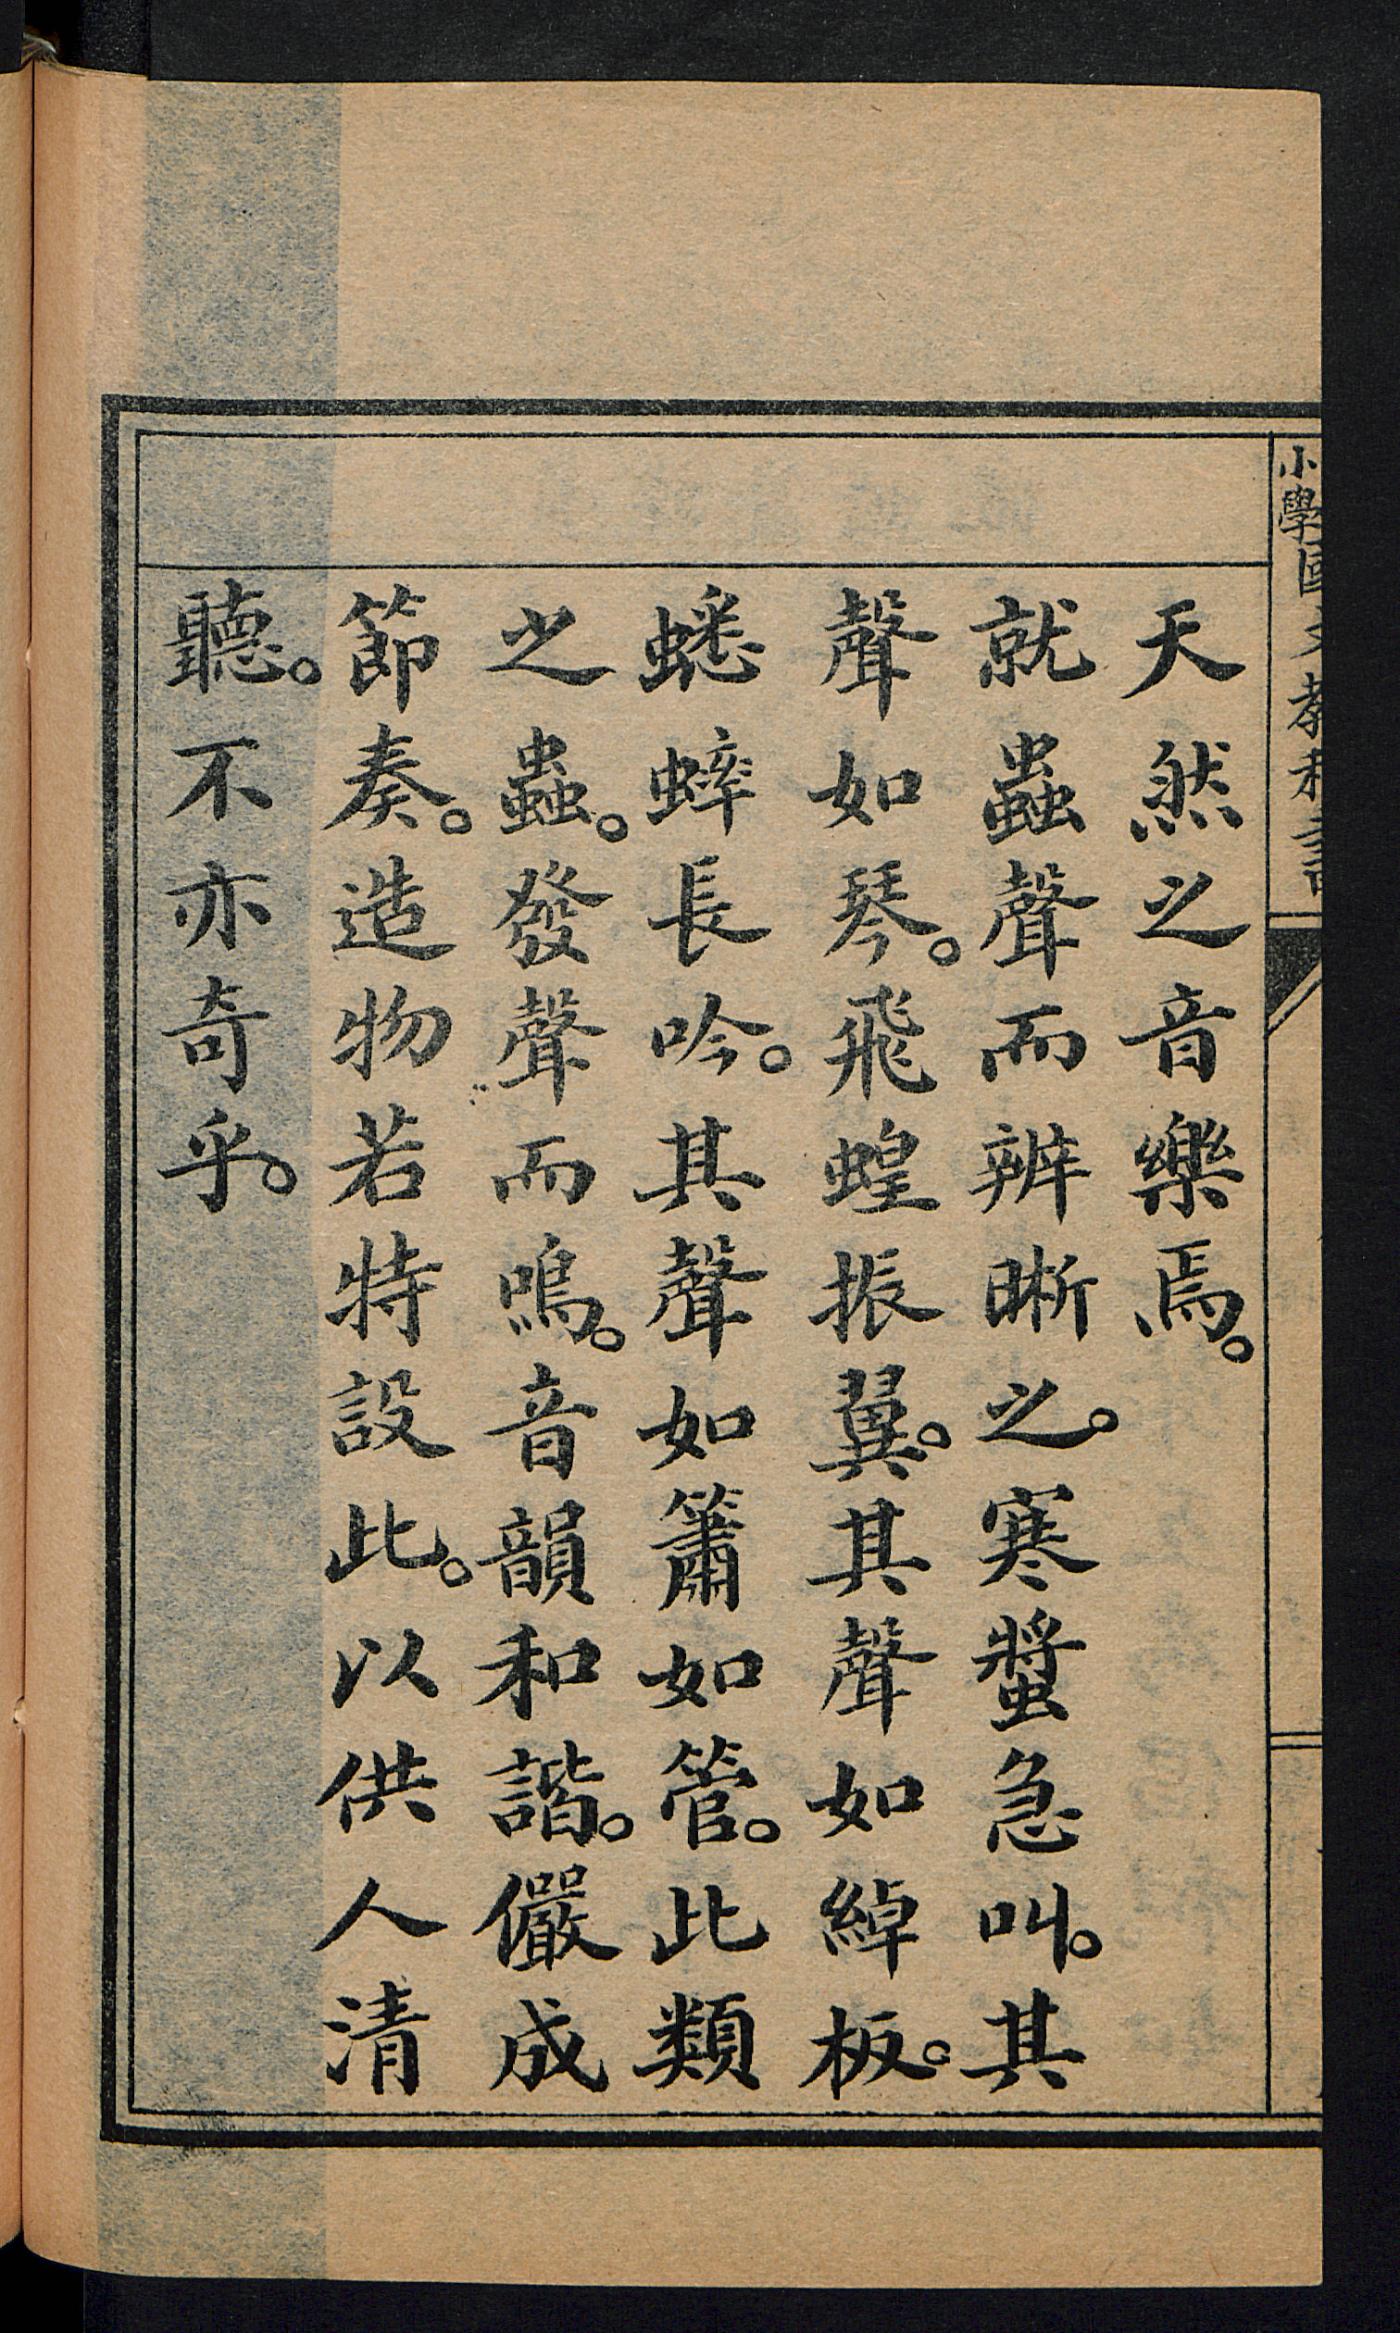 小學國文教科書
天然之音樂焉。
就蟲聲而辨晰之。寒螿急叫。其
聲如琴。飛蝗振翼。其聲如綽板。
蟋蟀長吟。其聲如簫如管。此類
之蟲。發聲而鳴。音韻和諧。儼成
節奏。造物若特設此。以供人清
聽。不亦奇乎。